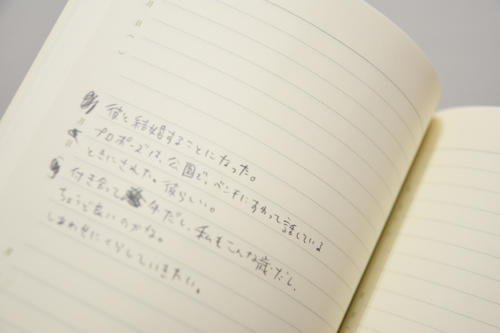 彼と結婚することになった。
プロポーズは、公園で、ベンチにすわって話している
ときにされた。彼らしい。
付き合って 年だし、私もこんな歳だし、
ちょうど良いのかな。
しあわせにくらしていきたい。